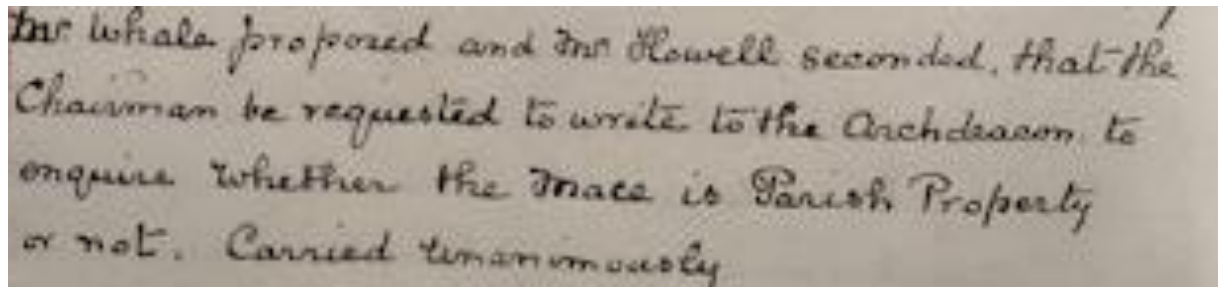 Mr Whale proposed and Mr Howell seconded, that the
Chairman be requested to write to the Archdeacon, to
enquire whether the Mace is Parish Property
or not. Carried unanimously